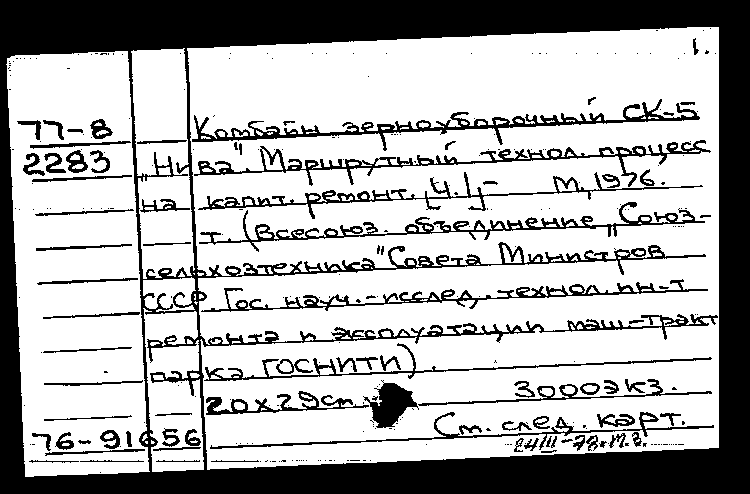 1.
77-8 Комбайн зерноуборочный СК-5
2283 „Нива". Маршрутный технол. процесс
на капит. ремонт. [Ч.1]- М., 1976.
т. (Всесоюз. объединение „Союз-
сельхозтехника" Совета Министров
СССР. Гос. науч.-исслед. технол. ин-т
ремонта и эксплуатации маш.-тракт
парка ГОСНИТИ).
20x29см 3000экз.
76-91656 См. след. карт.
24/III-78. М.З.